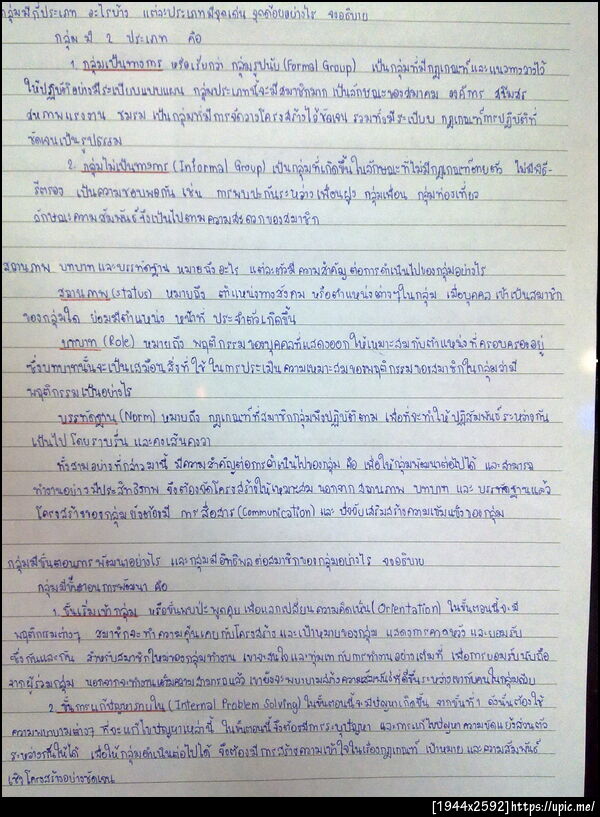 กลุ่มมีกี่ประเภท อะไรบ้าง แต่ละประเภทมีจุดเด่น จุดด้อยอย่างไร จงอธิบาย
กลุ่ม มี 2 ประเภท คือ
1. กลุ่มเป็นทางการ หรือเรียกว่า กลุ่มรูปนัย (Formal Group) เป็นกลุ่มที่มีกฎเกณฑ์และแนวทางวางไว้
ให้ปฏิบัติอย่างมีระเบียบแบบแผน กลุ่มประเภทนี้จะมีสมาชิกมาก เป็นลักษณะของสมาคม องค์การ สโมสร
สหภาพแรงงาน ชมรม เป็นกลุ่มที่มีการจัดวางโครงสร้างไว้ชัดเจน รวมทั้งมีระเบียบ กฎเกณฑ์การปฏิบัติที่
ชัดเจนเป็นรูปธรรม
2. กลุ่มไม่เป็นทางการ (Informal Group) เป็นกลุ่มที่เกิดขึ้นในลักษณะที่ไม่มีกฎเกณฑ์ตายตัว ไม่มีพิธี-
รีตรอง เป็นความชอบพอกัน เช่น การพบปะกันระหว่างเพื่อนฝูง กลุ่มเพื่อน กลุ่มท่องเที่ยว
ลักษณะความสัมพันธ์จึงเป็นไปตามความสะดวกของสมาชิก
สถานภาพ บทบาท และบรรทัดฐาน หมายถึงอะไร แต่ละตัวมีความสำคัญต่อการดำเนินไปของกลุ่มอย่างไร
สถานภาพ (Status) หมายถึง ตำแหน่งทางสังคม หรือตำแหน่งต่างๆในกลุ่ม เมื่อบุคคลเข้าเป็นสมาชิก
ของกลุ่มใด ย่อมมีตำแหน่ง หน้าที่ ประจำตัวเกิดขึ้น
บทบาท (Role) หมายถึง พฤติกรรมของบุคคลที่แสดงออกให้เหมาะสมกับตำแหน่งที่ครอบครองอยู่
ซึ่งบทบาทนั้นจะเป็นเสมือนสิ่งที่ใช้ในการประเมินความเหมาะสมของพฤติกรรมของสมาชิกในกลุ่มว่ามี
พฤติกรรมเป็นอย่างไร
บรรทัดฐาน (Norm) หมายถึง กฎเกณฑ์ที่สมาชิกกลุ่มพึงปฏิบัติตาม เพื่อที่จะทำให้ปฏิสัมพันธ์ระหว่างกัน
เป็นไปโดยราบรื่น และคงเส้นคงวา
ทั้งสามอย่างที่กล่าวมานี้ มีความสำคัญต่อการดำเนินไปของกลุ่ม คือ เพื่อให้กลุ่มพัฒนาต่อไปได้ และสามารถ
ทำงานอย่างมีประสิทธิภาพ จึงต้องจัดโครงสร้างให้เหมาะสม นอกจาก สถานภาพ บทบาท และ บรรทัดฐานแล้ว
โครงสร้างของกลุ่มยังต้องมี การสื่อสาร (Communication) และ ปัจจัยเสริมสร้างความเข้มแข็งของกลุ่ม
กลุ่มมีขั้นตอนการพัฒนาอย่างไร และกลุ่มมีอิทธิพลต่อสมาชิกของกลุ่มอย่างไร จงอธิบาย
กลุ่มมีขั้นตอนการพัฒนา คือ
1. ขั้นเริ่มเข้ากลุ่ม หรือขั้นพบปะพูดคุย เพื่อแลกเปลี่ยนความคิดเห็น (Orientation) ในขั้นตอนนี้จะมี
พฤติกรรมต่างๆ สมาชิกจะทำความคุ้นเคยกับโครงสร้าง และเป้าหมายของกลุ่ม แสดงการคาดหวัง และยอมรับ
ซึ่งกันและกัน สำหรับสมาชิกใหม่ของกลุ่มทำงาน เขาจะสนใจ และทุ่มเทกับการทำงานอย่างเต็มที่ เพื่อการยอมรับนับถือ
จากผู้ร่วมกลุ่ม นอกจากจะทำงานเต็มความสามารถแล้ว เขายังจะพยายามสร้างความสัมพันธ์ที่ดีขึ้นระหว่างเขากับคนในกลุ่มด้วย
2. ขั้นการแก้ปัญหาภายใน (Internal Problem Solving) ในขั้นตอนนี้จะมีปัญหาเกิดขึ้น จากขั้นที่1 ดังนั้นต้องใช้
ความพยายามต่างๆ ที่จะแก้ไขปัญหาเหล่านี้ ในขั้นตอนนี้จึงต้องมีการระบุปัญหา และการแก้ไขปัญหา ความขัดแย้งส่วนตัว
ระหว่างกันให้ได้ เพื่อให้กลุ่มดำเนินต่อไปได้ จึงต้องมีการสร้างความเข้าใจในเรื่องกฎเกณฑ์ เป้าหมาย และความสัมพันธ์
เชิงโครงสร้างอย่างชัดเจน
[1944x2592]https://upic.me/